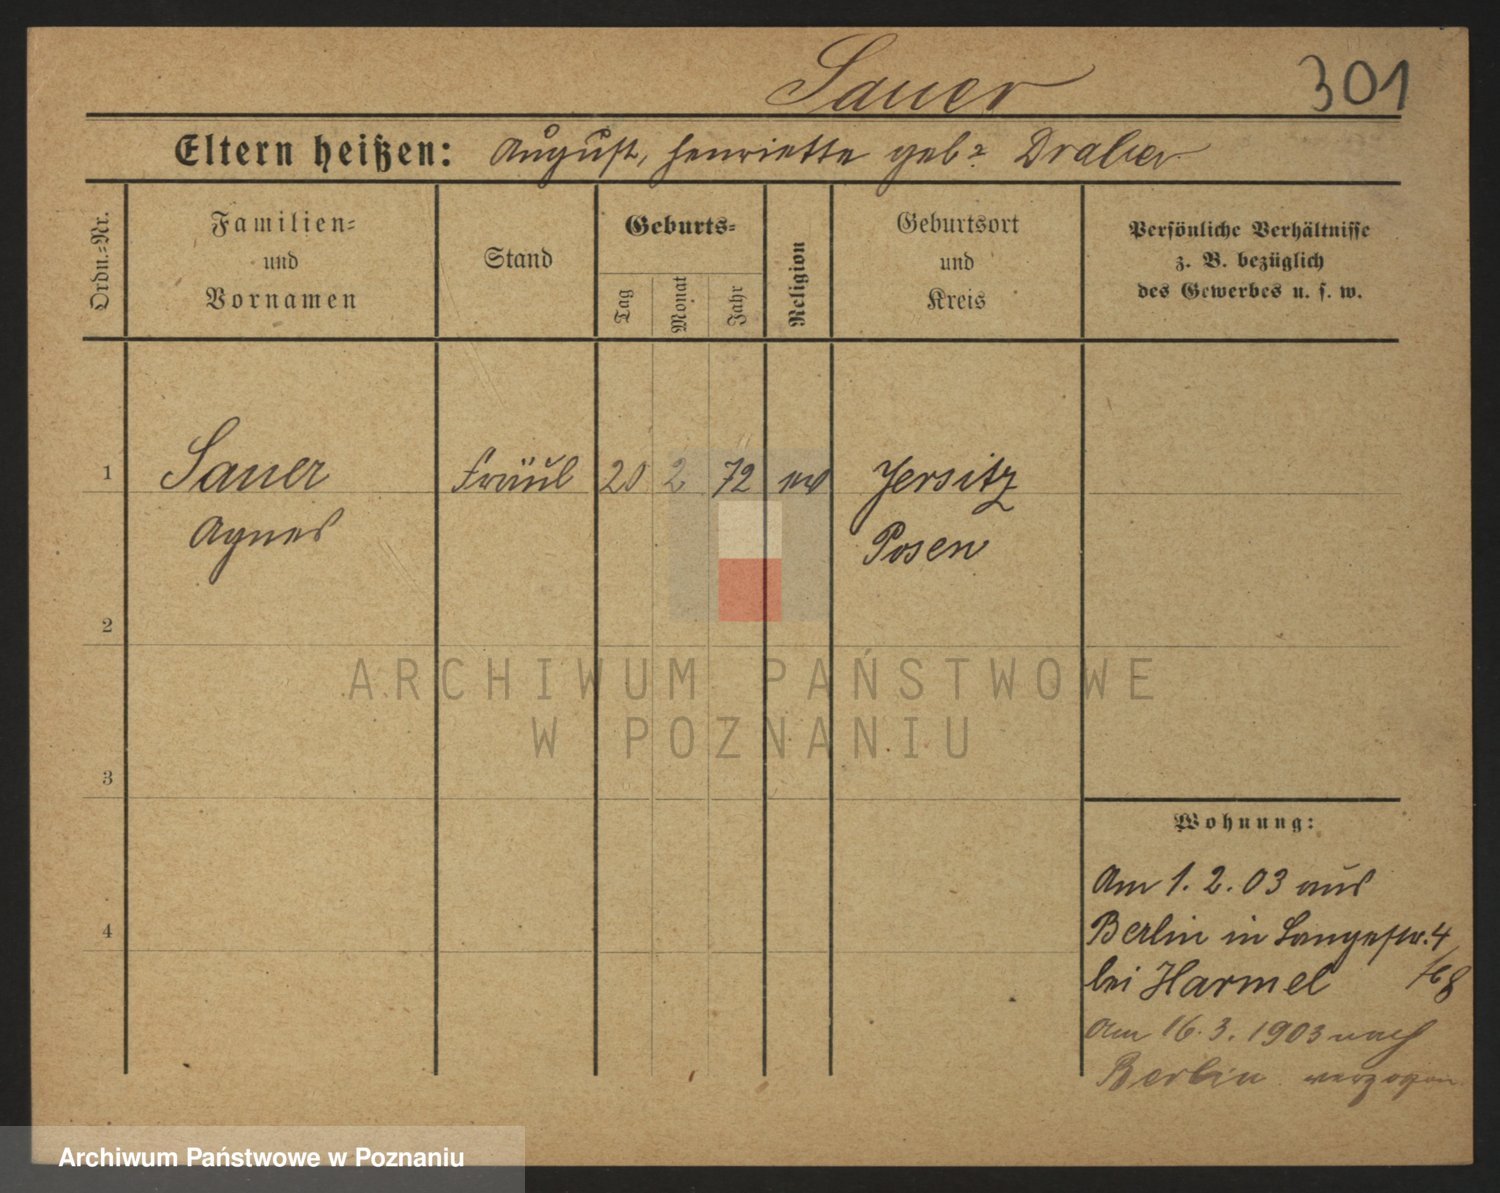 Sauer
301
Eltern heißen: August, Henriette geb. Draber
Ordn.-Nr.
Familien-
und
Vornamen
Stand
Geburts-
Tag
Monat
Jahr
Religion
Geburtsort
und
Kreis
Persönliche Verhältnisse
z. B. bezüglich
des Gewerbes u. s. w.
1 Sauer Fräul 20 2 72 ev Jersitz
Agnes Posen
2
3
4
ARCHIWUM PAŃSTWOWE
W POZNANIU
Wohnung:
Am 1. 2. 03 aus
Berlin in Langestr. 4
bei Harmel
Am 16. 3. 1903 nach
Berlin verzogen
Archiwum Państwowe w Poznaniu